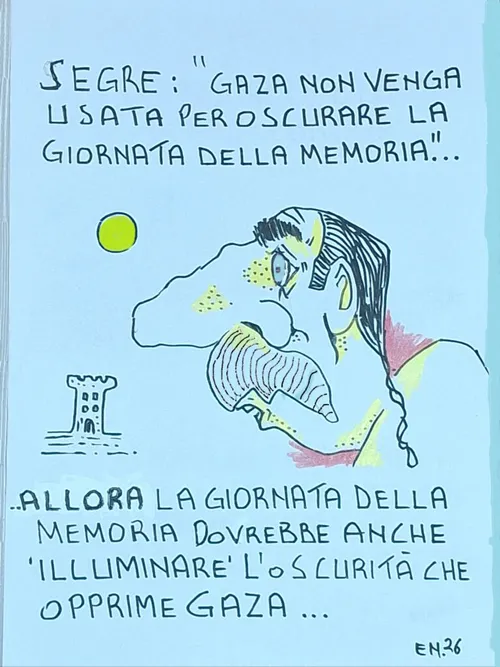 SEGRE: "GAZA NON VENGA
USATA PER OSCURARE LA
GIORNATA DELLA MEMORIA"...
..ALLORA LA GIORNATA DELLA
MEMORIA DOVREBBE ANCHE
'ILLUMINARE' L'OSCURITÀ CHE
OPPRIME GAZA ...
EN.26